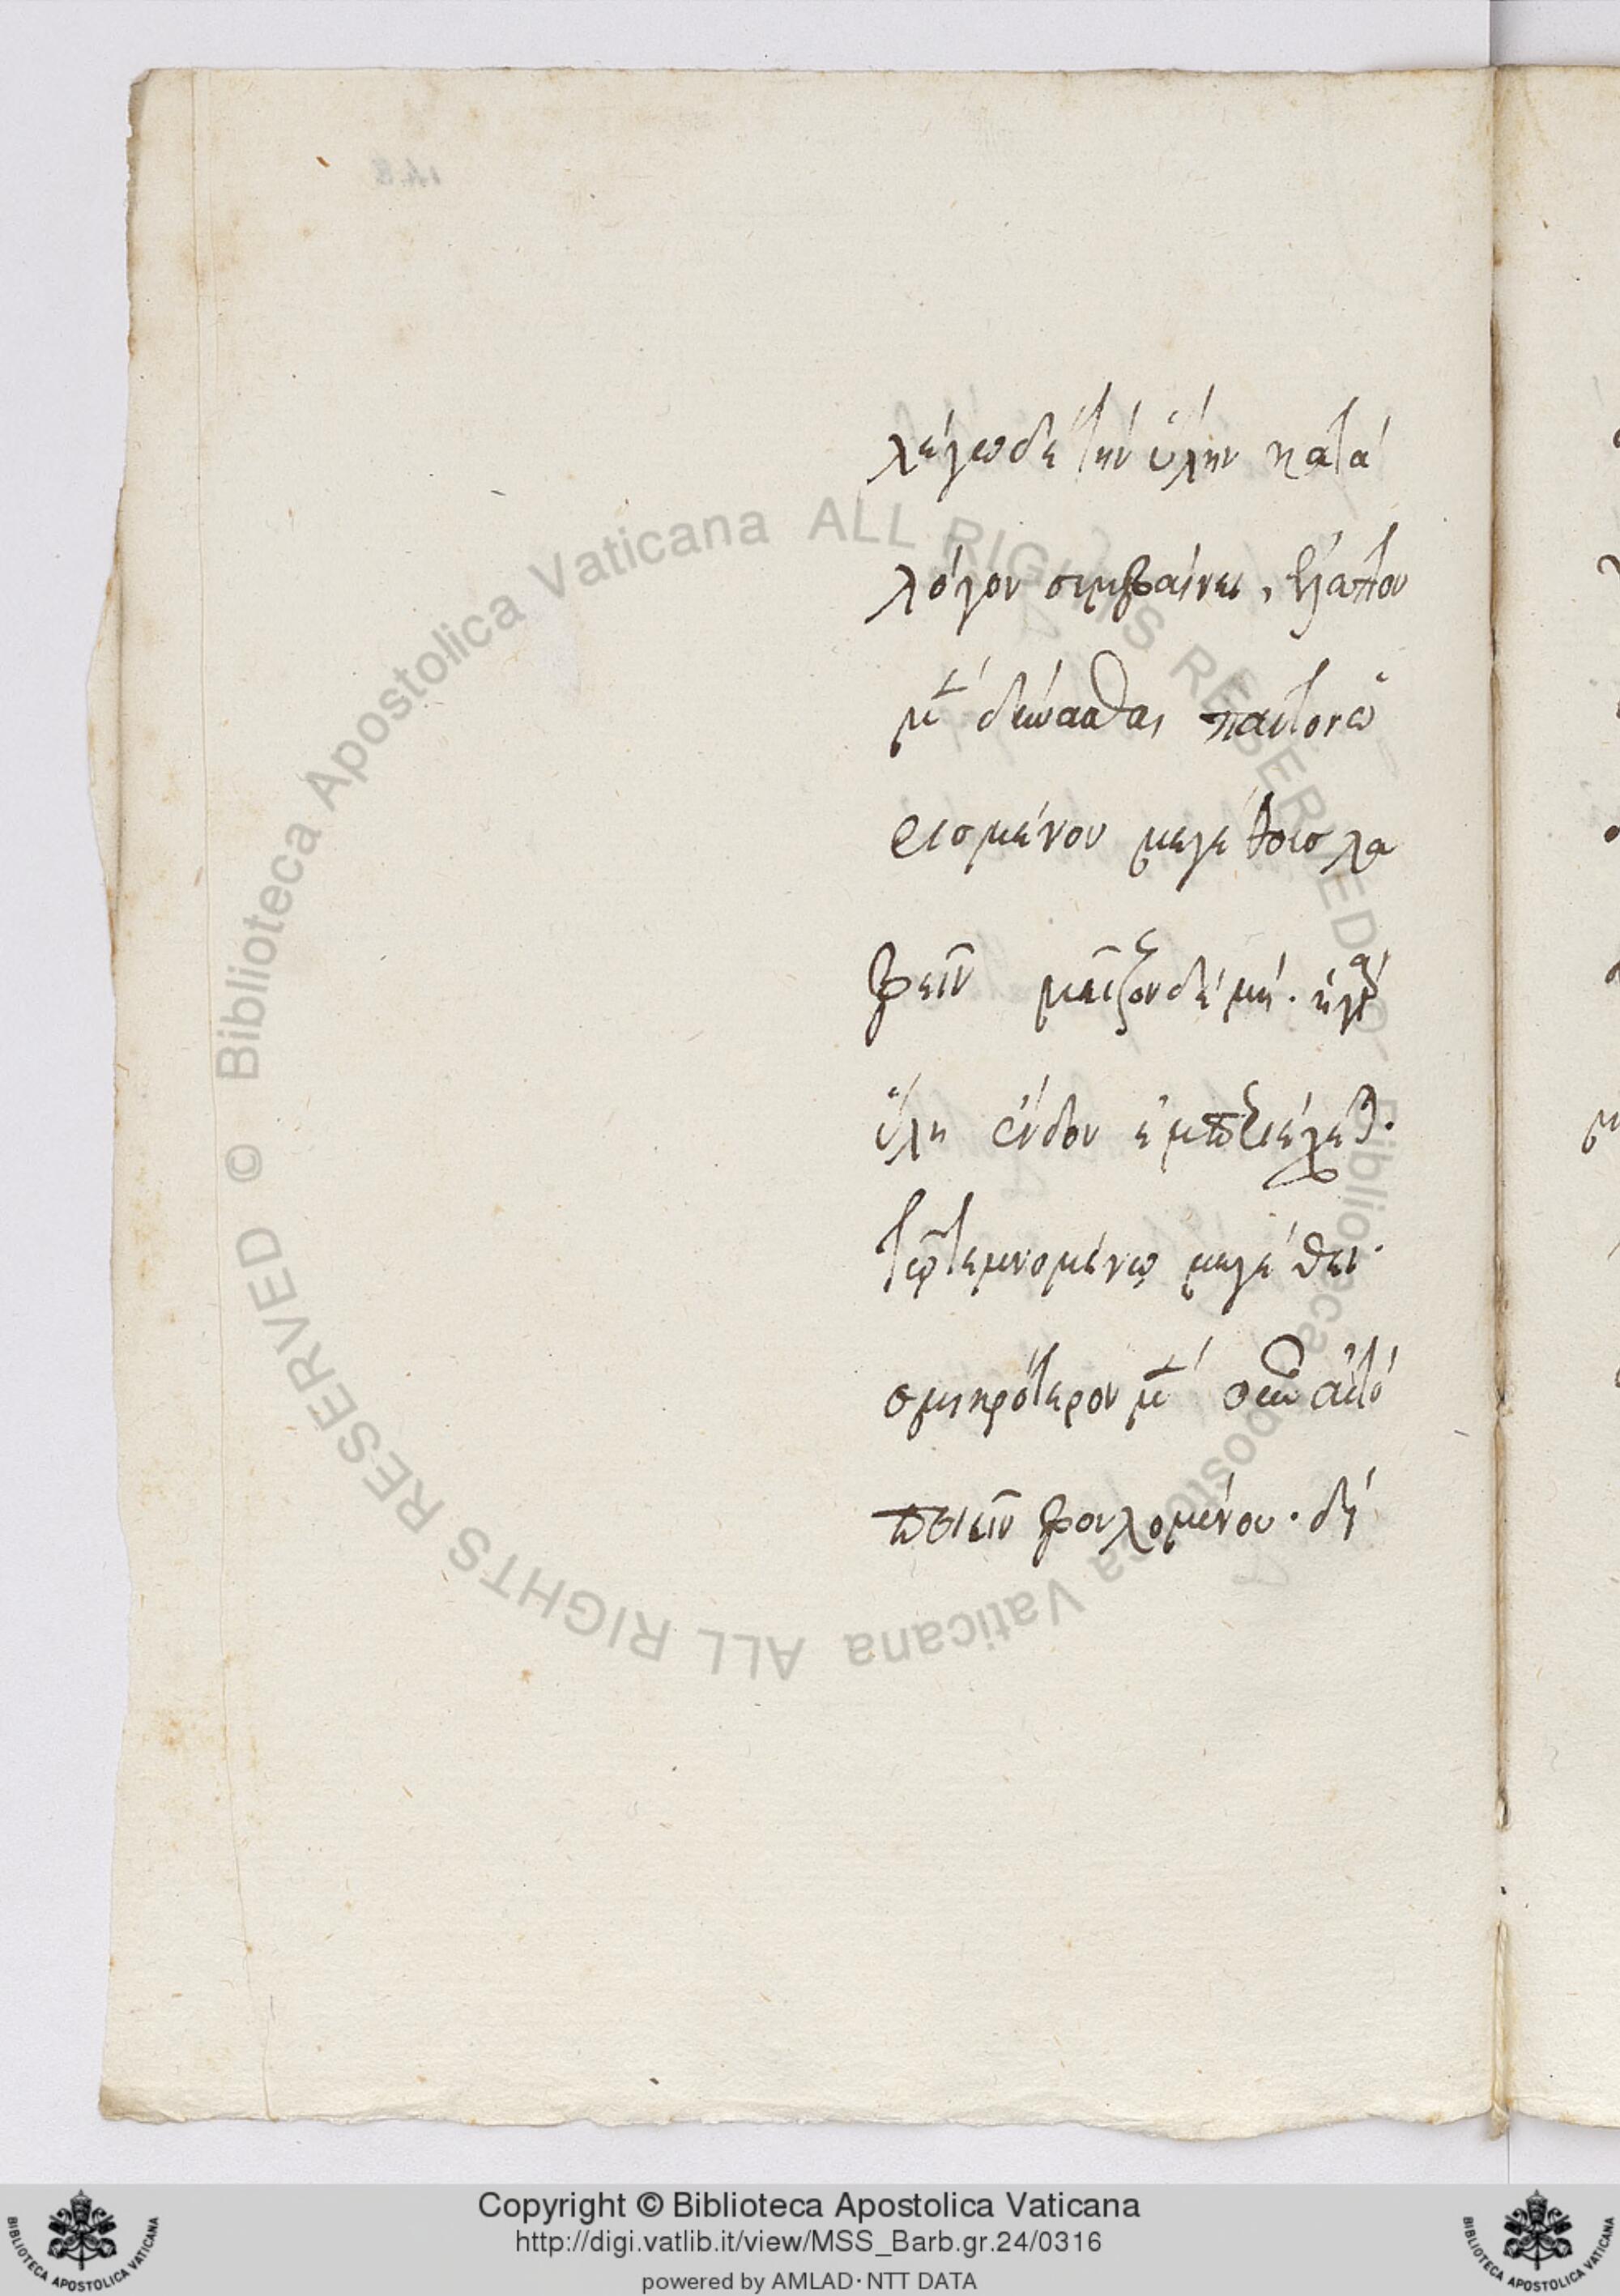 λέγω δὲ τὴν ὕλην κατὰ
λόγον συμβαίνει, ἔλαττον
μὲν δύνασθαι παντὸς ὡ
ρισμένου μεγέθους λα
βεῖν μεῖζον δὲ μή. ἡ γὰρ
ὕλη ἔνδον ἐμπεριέχεται.
τῷ τεμνομένῳ μεγέθει.
σμικρότερον μὲν οὖν αὐτὸ
ποιεῖν βουλομένου. δὴ
Copyright © Biblioteca Apostolica Vaticana
http://digi.vatlib.it/view/MSS_Barb.gr.24/0316
powered by AMLAD·NTT DATA
© Biblioteca Apostolica Vaticana ALL RIGHTS RESERVED
© Biblioteca Apostolica Vaticana ALL RIGHTS RESERVED
BIBLIOTECA APOSTOLICA VATICANA
BIBLIOTECA APOSTOLICA VATICANA